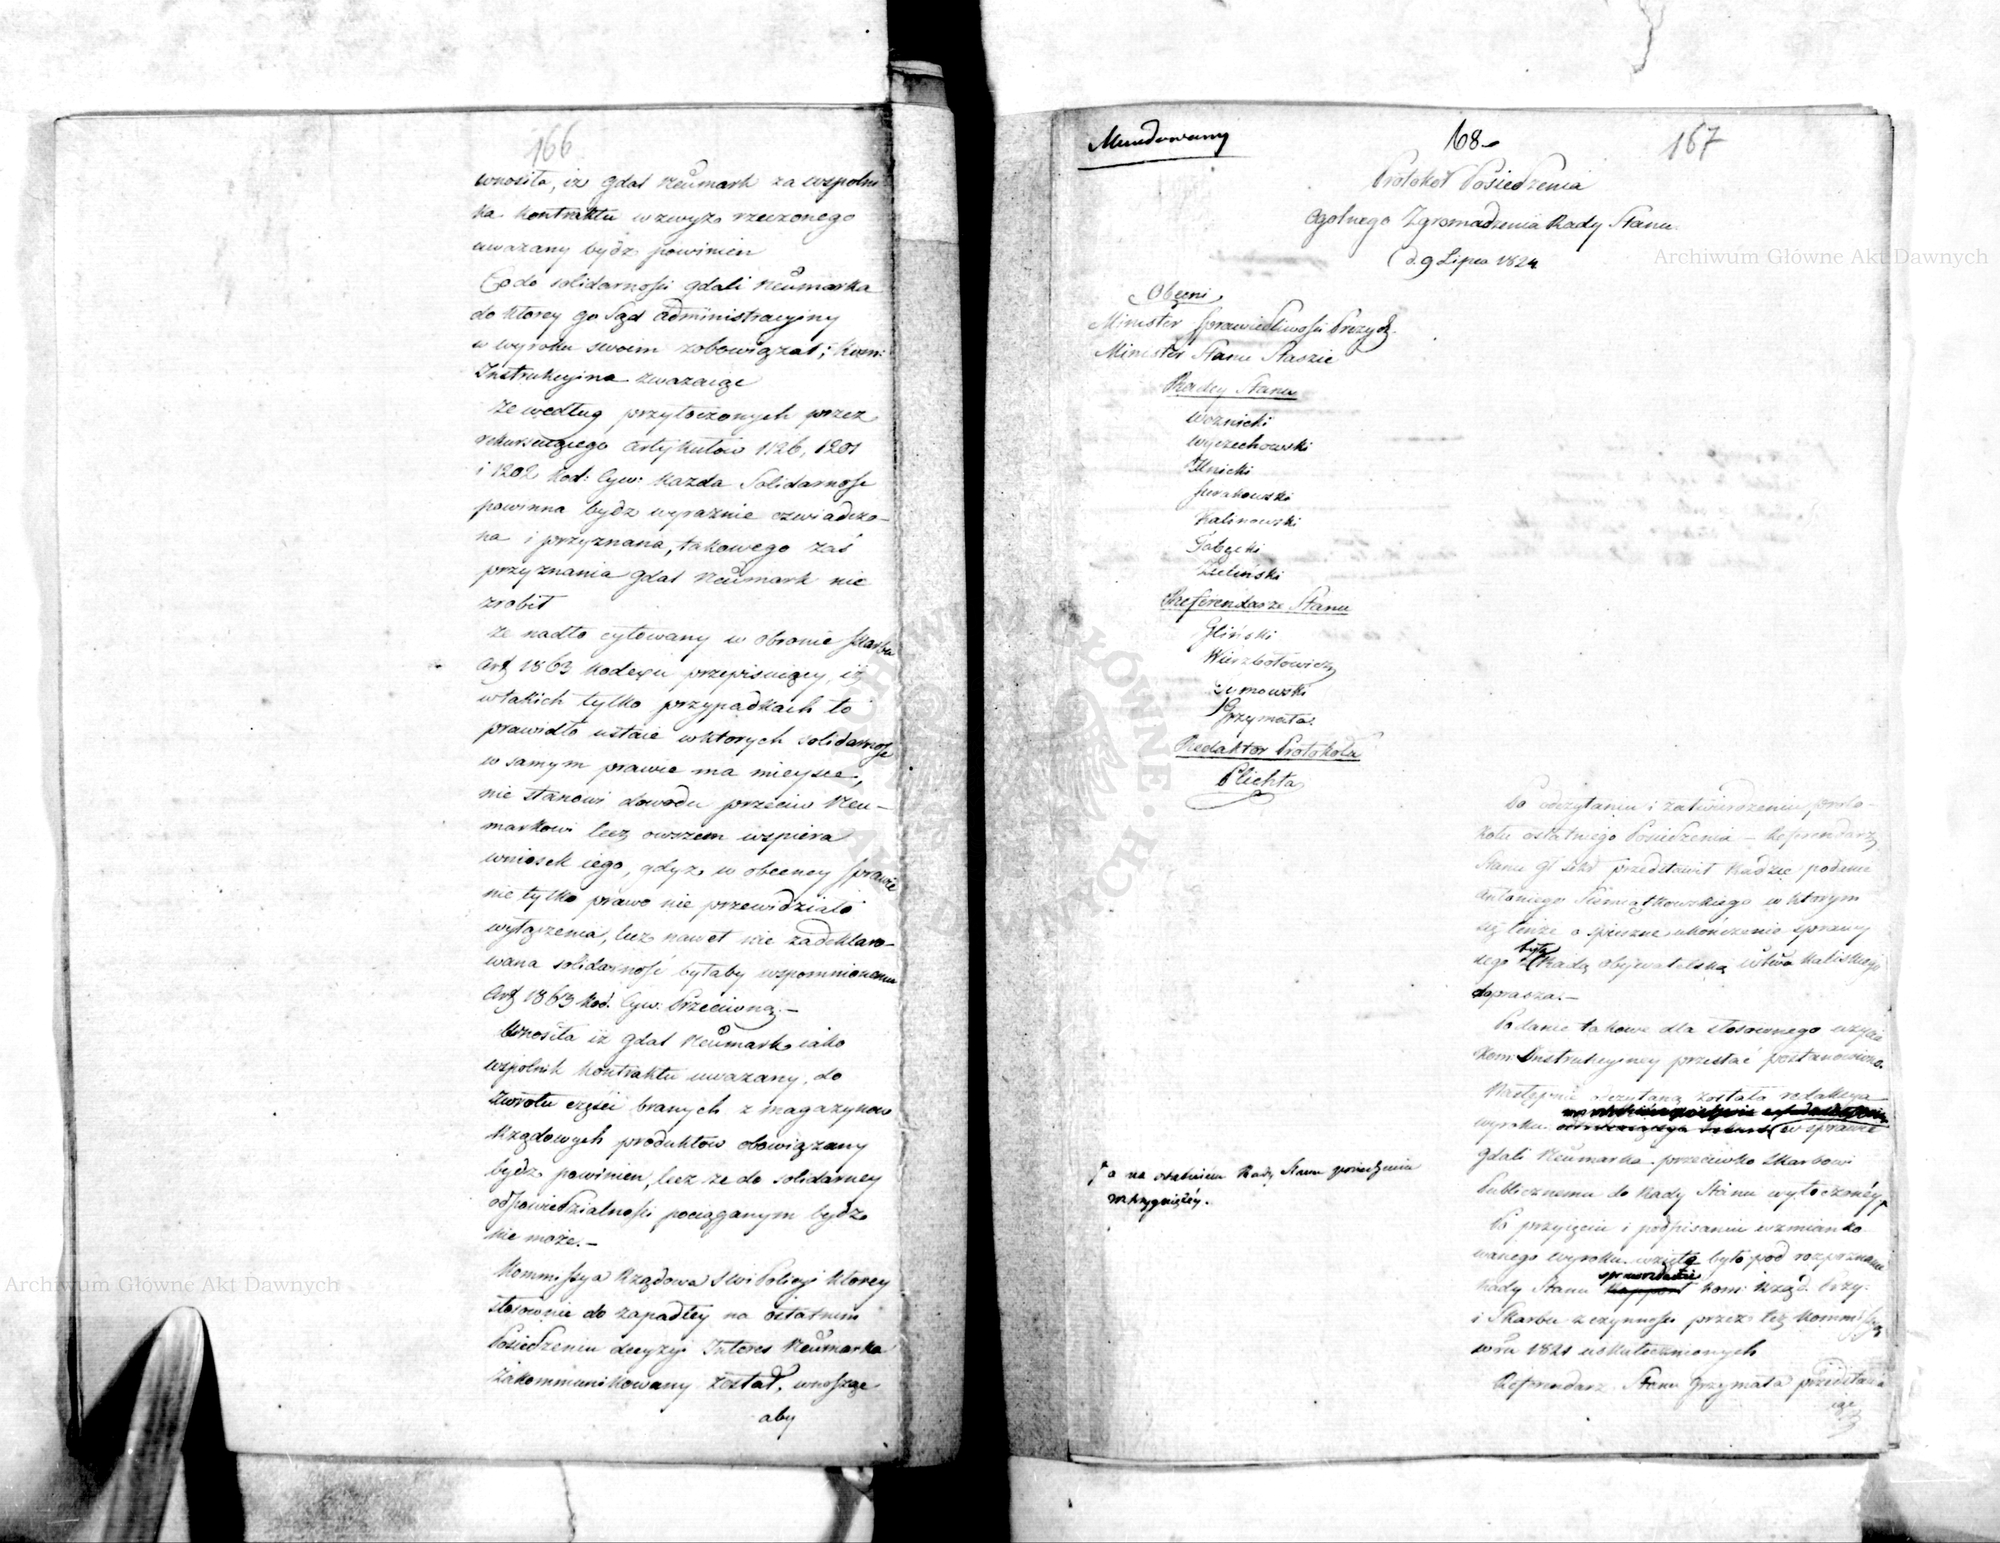 166
wnosiła, iż Gdal Neŭmark za wspolni
ka kontraktu wzwyż rzeczonego
uważany bydź powinien
Co do solidarności Gdali Neŭmarka
do ktorey go Sąd administracyiny
w wyroku swoim zobowiązał; Kom:
Instrukcyina zważaiąc
że według przytoczonych przez
rekursuiącego artykułow 1126, 1201
i 1202 Kod: Cyw: każda Solidarność
powinna bydź wyraźnie oświadczo-
na i przyznana, takowego zaś
przyznania Gdal Neŭmark nie
zrobił
że nadto cytowany w obronie Skarbu
Art 1863 Kodexu przepisuiący, iż
w takich tylko przypadkach to
prawidło ustaie w ktorych solidarność
w samym prawie ma mieysce,
nie stanowi dowodu przeciw Neu-
markowi lecz owszem wspiera
wniosek iego, gdyż w obecney sprawie
nie tylko prawo nie przewidziało
wyłączenia, lecz nawet nie zadeklaro-
wana solidarność byłaby wspomnionemu
Art 1863 Kod. Cyw: Przeciwną.-
Wnosiła iż Gdal Neŭmark iako
wspolnik kontraktu uważany, do
zwrotu części branych z magazynow
Rządowych produktow obowiązany
bydź powinien, lecz że do solidarney
odpowiedzialności pociąganym bydź
nie może.-
Kommissya Rządowa S W i Policyi ktorey
stosownie do zapadłey na ostatnim
Posiedzeniu decyzyi Interes Neŭmarka
zakommunikowany został, wnosząc
aby
Mundowany
168.
167
Protokoł Posiedzenia
Ogolnego Zgromadzenia Rady Stanu
d. 9 Lipca 1824
Obecni
Minister Sprawiedliwości Prezyd.
Minister Stanu Staszic
Radcy Stanu
Woznicki
Wyczechowski
Ilnicki
Surakowski
Kalinowski
Gołęcki
Zieliński
Referendarze Stanu
Gliński
Wierzbołowicz
Zymowski
Grzymała
Redaktor Protokołu
Plichta
Po odczytaniu i zatwierdzeniu proto-
kołu ostatniego Posiedzenia - Referendarz
Stanu przedstawił Radzie podanie
Antoniego Siemiątkowskiego w ktorym
się tenże o spieszne ukończenie sprawy
była
iego z Radą obywatelską Wtwa Kaliskiego
doprasza.-
Podanie takowe dla stosownego użycia
Kom: Instrukcyiney przesłać postanowiono.
Następnie odczytaną została redakcya
wyroku w sprawie
Gdali Neumarka przeciwko Skarbowi
Publicznemu do Rady Stanu wytoczonéy
a na ostatniém Rady Stanu posiedzeniu
rozstrzygniętéy.
Po przyięciu i podpisaniu wzmianko
wanego wyroku wzięte było pod rozpoznanie
sprawozdanie
Rady Stanu Rapport Kom: Rząd. Przy.
i Skarbu z czynności przez tęż Kommissyą
w Ru 1821 uskutecznionych
Referendarz Stanu Grzymała przedstawia
iąc
Archiwum Główne Akt Dawnych
Archiwum Główne Akt Dawnych